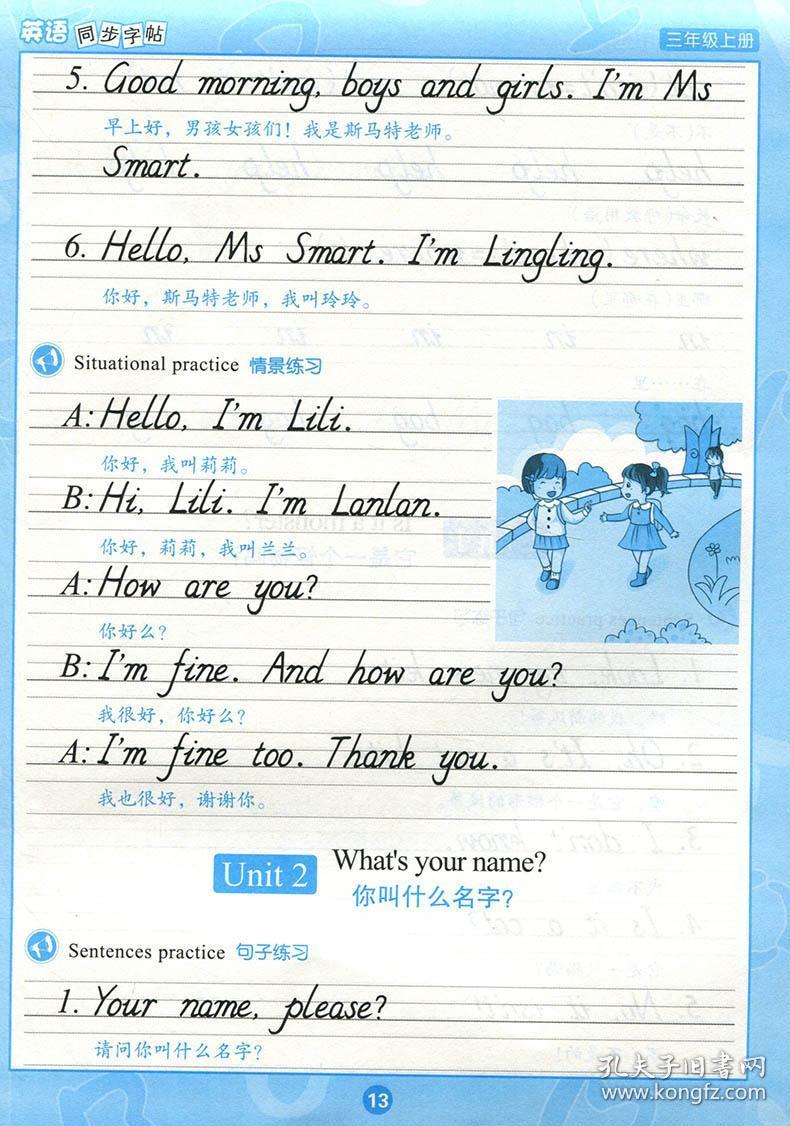 英语同步字帖
三年级上册
5. Good morning, boys and girls. I'm Ms
早上好，男孩女孩们！我是斯马特老师。
Smart.
6. Hello, Ms Smart. I'm Lingling.
你好，斯马特老师，我叫玲玲。
Situational practice 情景练习
A: Hello, I'm Lili.
你好，我叫莉莉。
B: Hi, Lili. I'm Lanlan.
你好，莉莉，我叫兰兰。
A: How are you?
你好么？
B: I'm fine. And how are you?
我很好，你好么？
A: I'm fine too. Thank you.
我也很好，谢谢你。
Unit 2 What's your name?
你叫什么名字？
Sentences practice 句子练习
1. Your name, please?
请问你叫什么名字？
13
孔夫子旧书网
www.kongfz.com